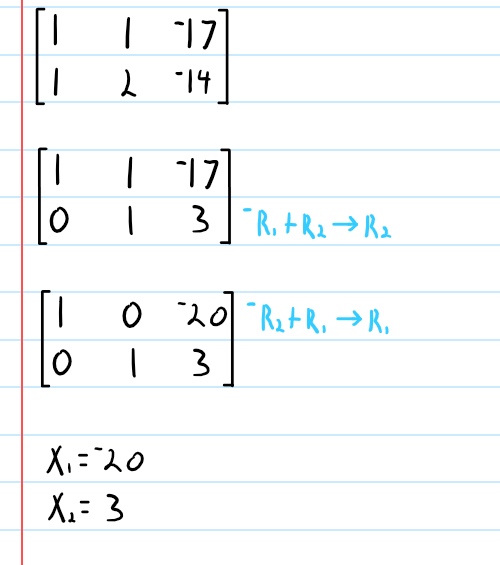 1 1 -17
1 2 -14
1 1 -17
0 1 3 -R₁+R₂→R₂
1 0 -20 -R₂+R₁→R₁
0 1 3
X₁=-20
X₂=3